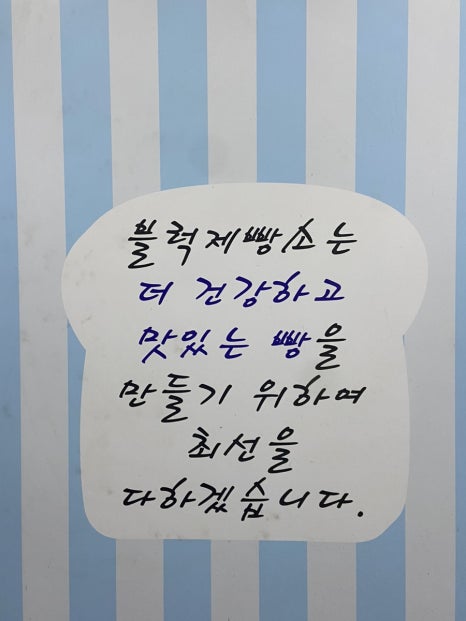 블럭제빵소는
더 건강하고
맛있는 빵을
만들기 위하여
최선을
다하겠습니다.